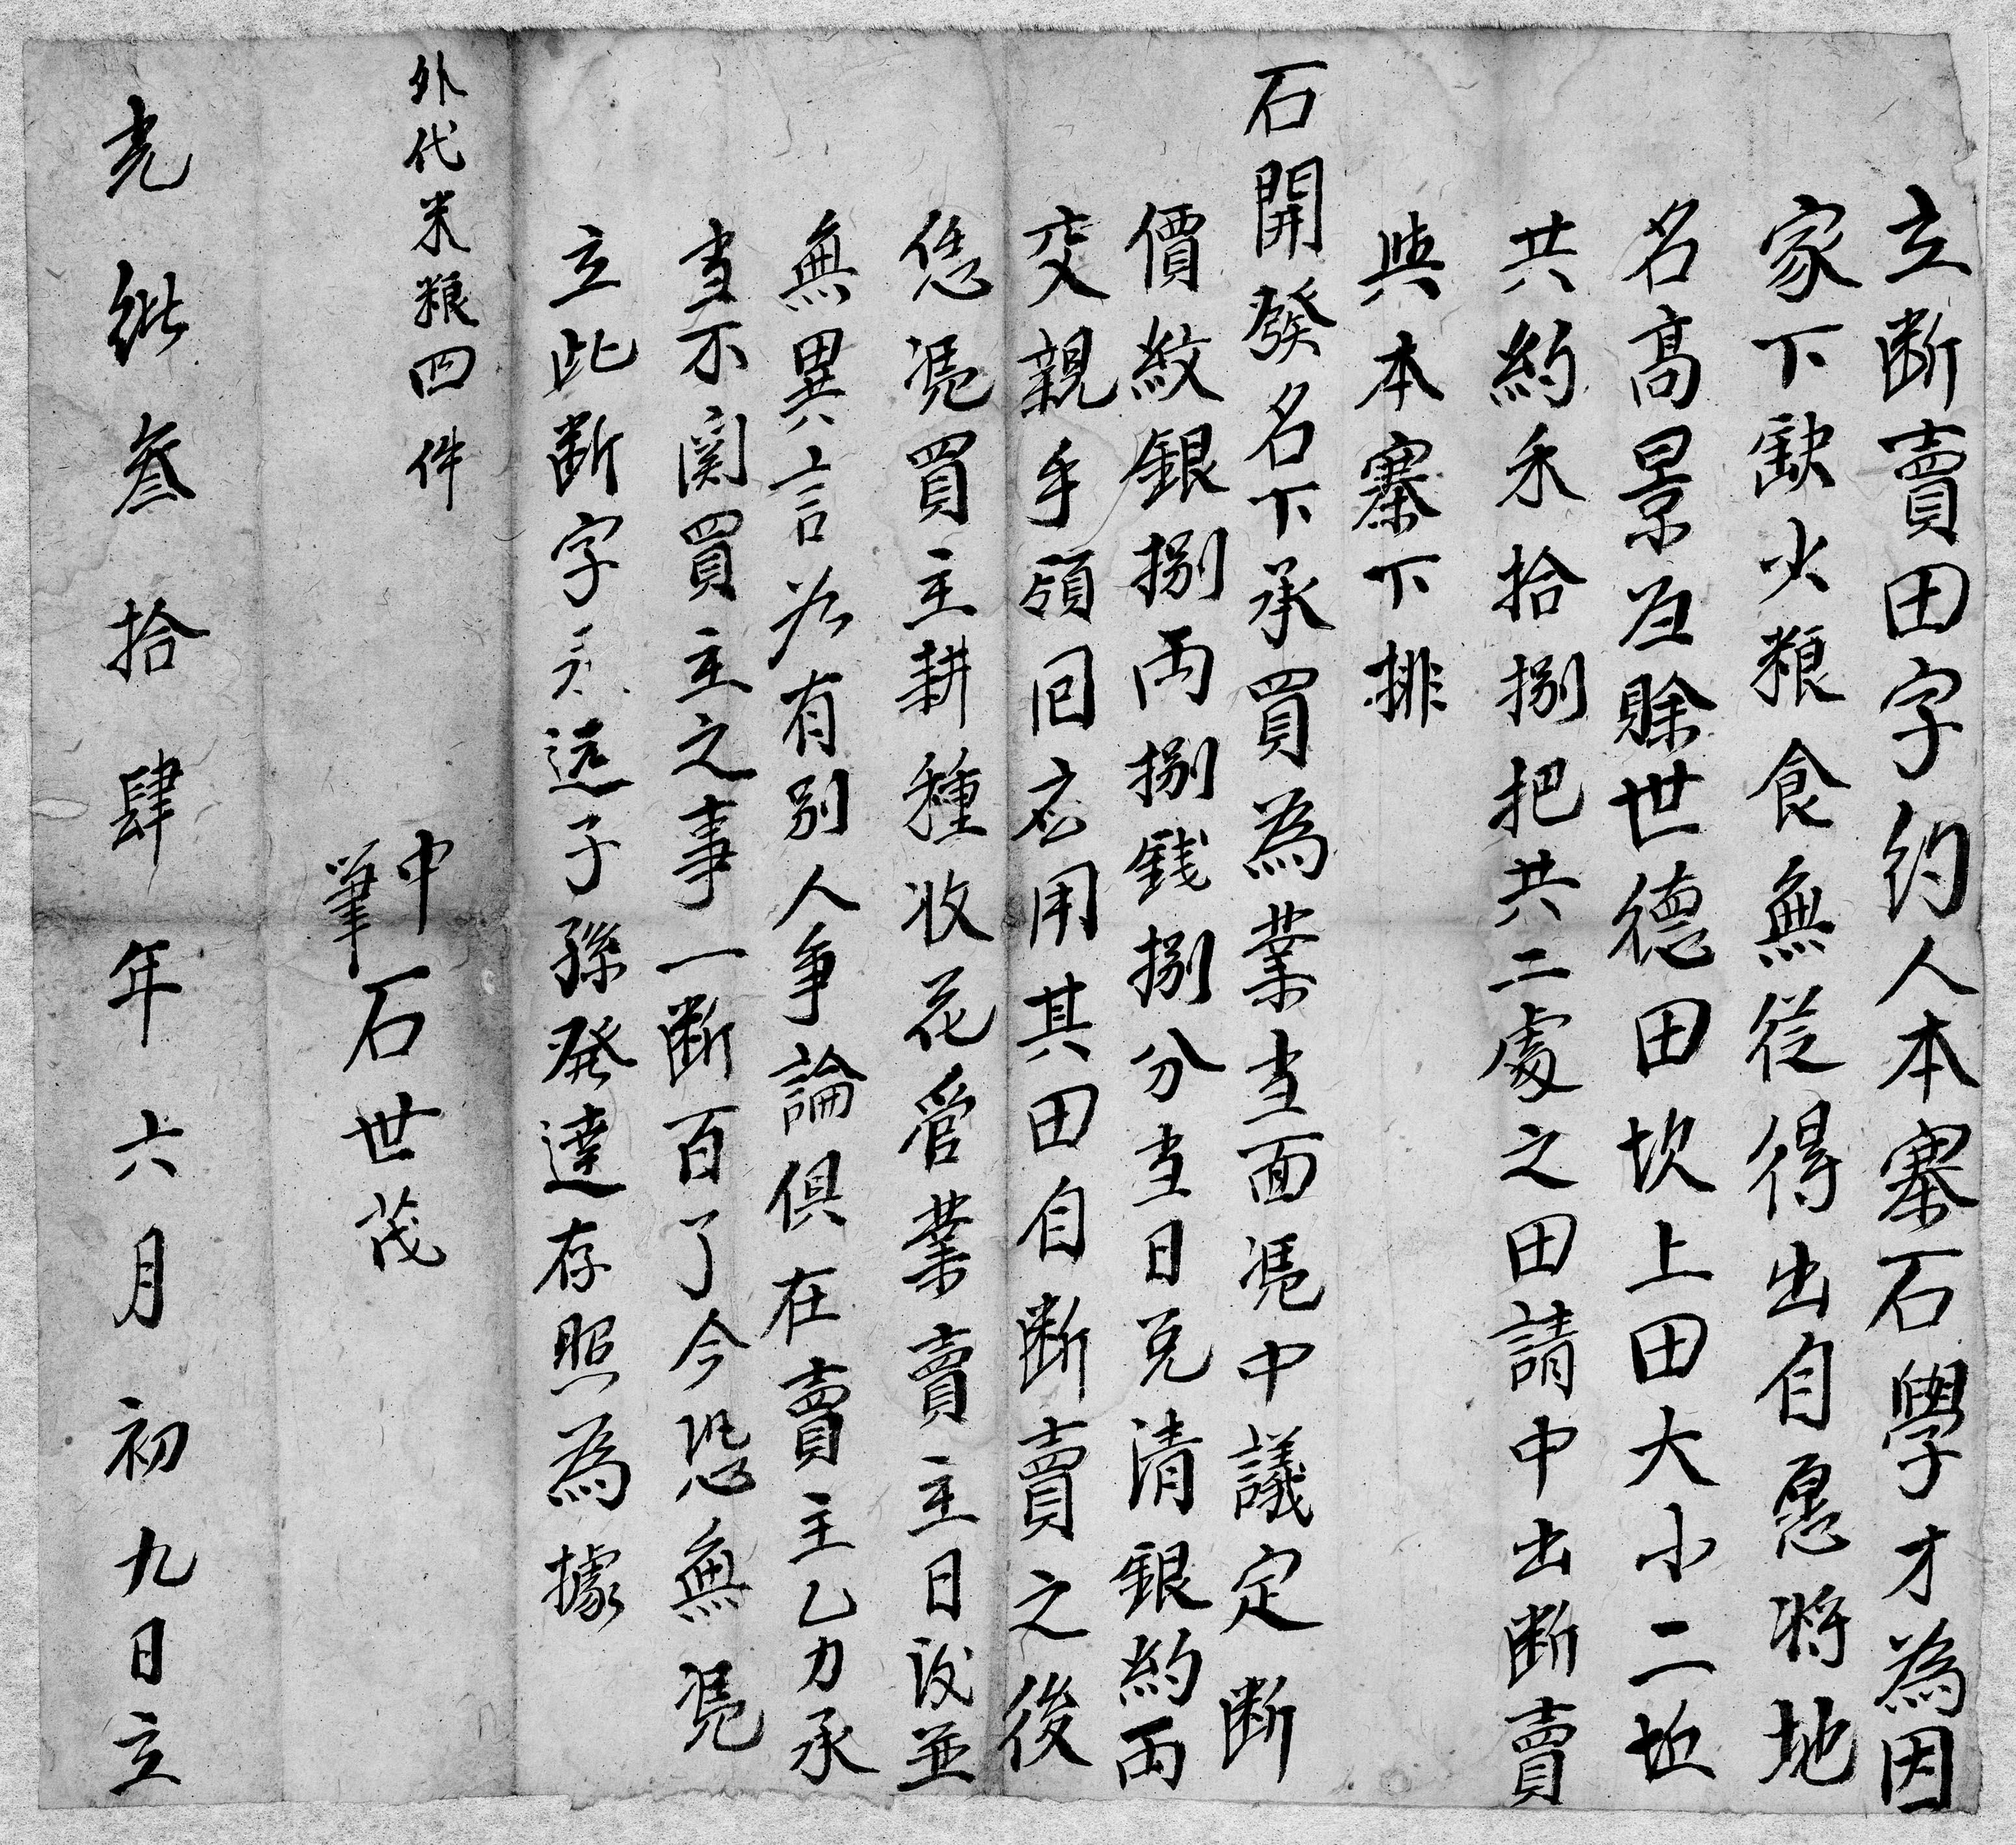 立断賣田字約人本寨石學才為因
家下缺火粮食無從得出自愿将地
名高景亙賒世德田坎上田大小二坵
共約禾拾捌把共二處之田請中出断賣
與本寨下排
石開發名下承買為業当面凴中議定断
價紋銀捌両捌錢捌分当日兑清銀約両
交親手領回应用其田自断賣之後
恁凴買主耕種收花管業賣主日後並
無異言若有别人争論俱在賣主乙力承
当不関買主之事一断百了今恐無凴
立此断字永遠子孫發達存照為據
外代米粮四件
中
筆
石世茂
光緒叁拾肆年六月初九日立